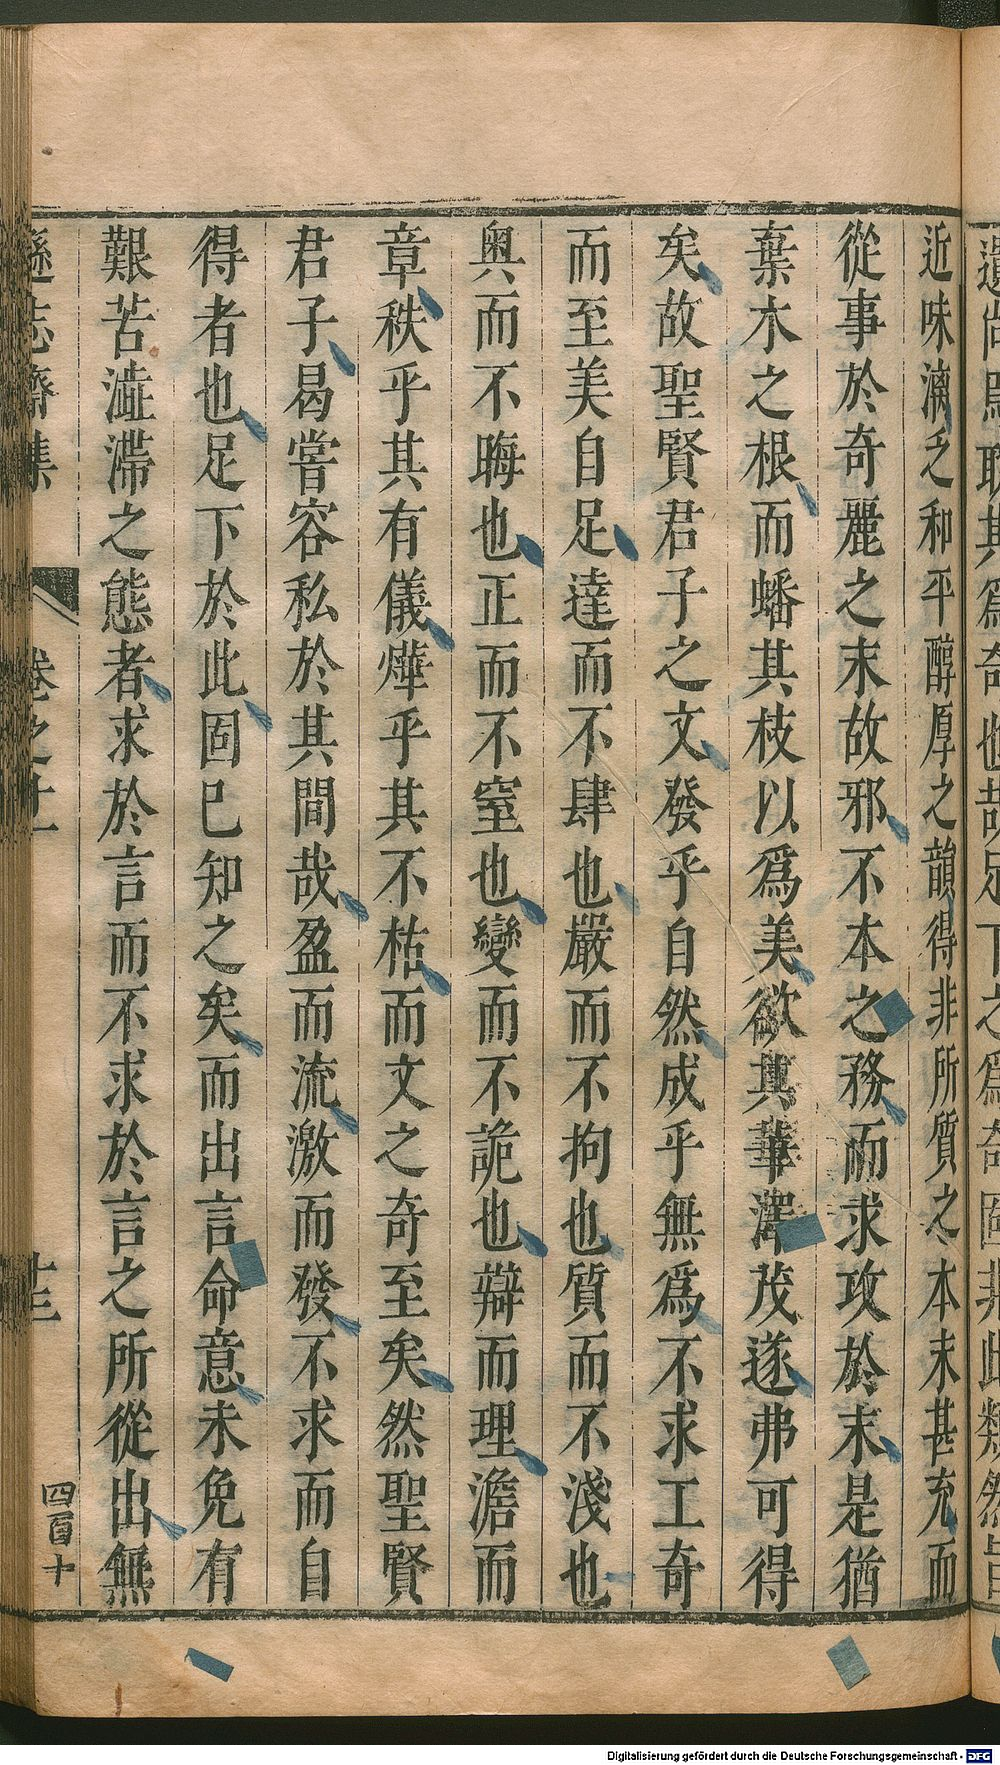 近味漓乏和平醇厚之韻得非所質之本末甚充而
從事於奇麗之末故邪不本之務而求攻於末是猶
棄木之根而蟠其枝以爲美欲其華澤茂遂弗可得
矣故聖賢君子之文發乎自然成乎無爲不求工奇
而至美自足達而不肆也嚴而不拘也質而不淺也
奧而不晦也正而不窒也變而不詭也辯而理澹而
章秩乎其有儀燁乎其不枯而文之奇至矣然聖賢
君子曷嘗容私於其間哉盈而流激而發不求而自
得者也足下於此固已知之矣而出言命意未免有
艱苦澁滯之態者求於言而不求於言之所從出無
遜志齋集
卷之十一
十三
四百十
Digitalisierung gefördert durch die Deutsche Forschungsgemeinschaft - DFG